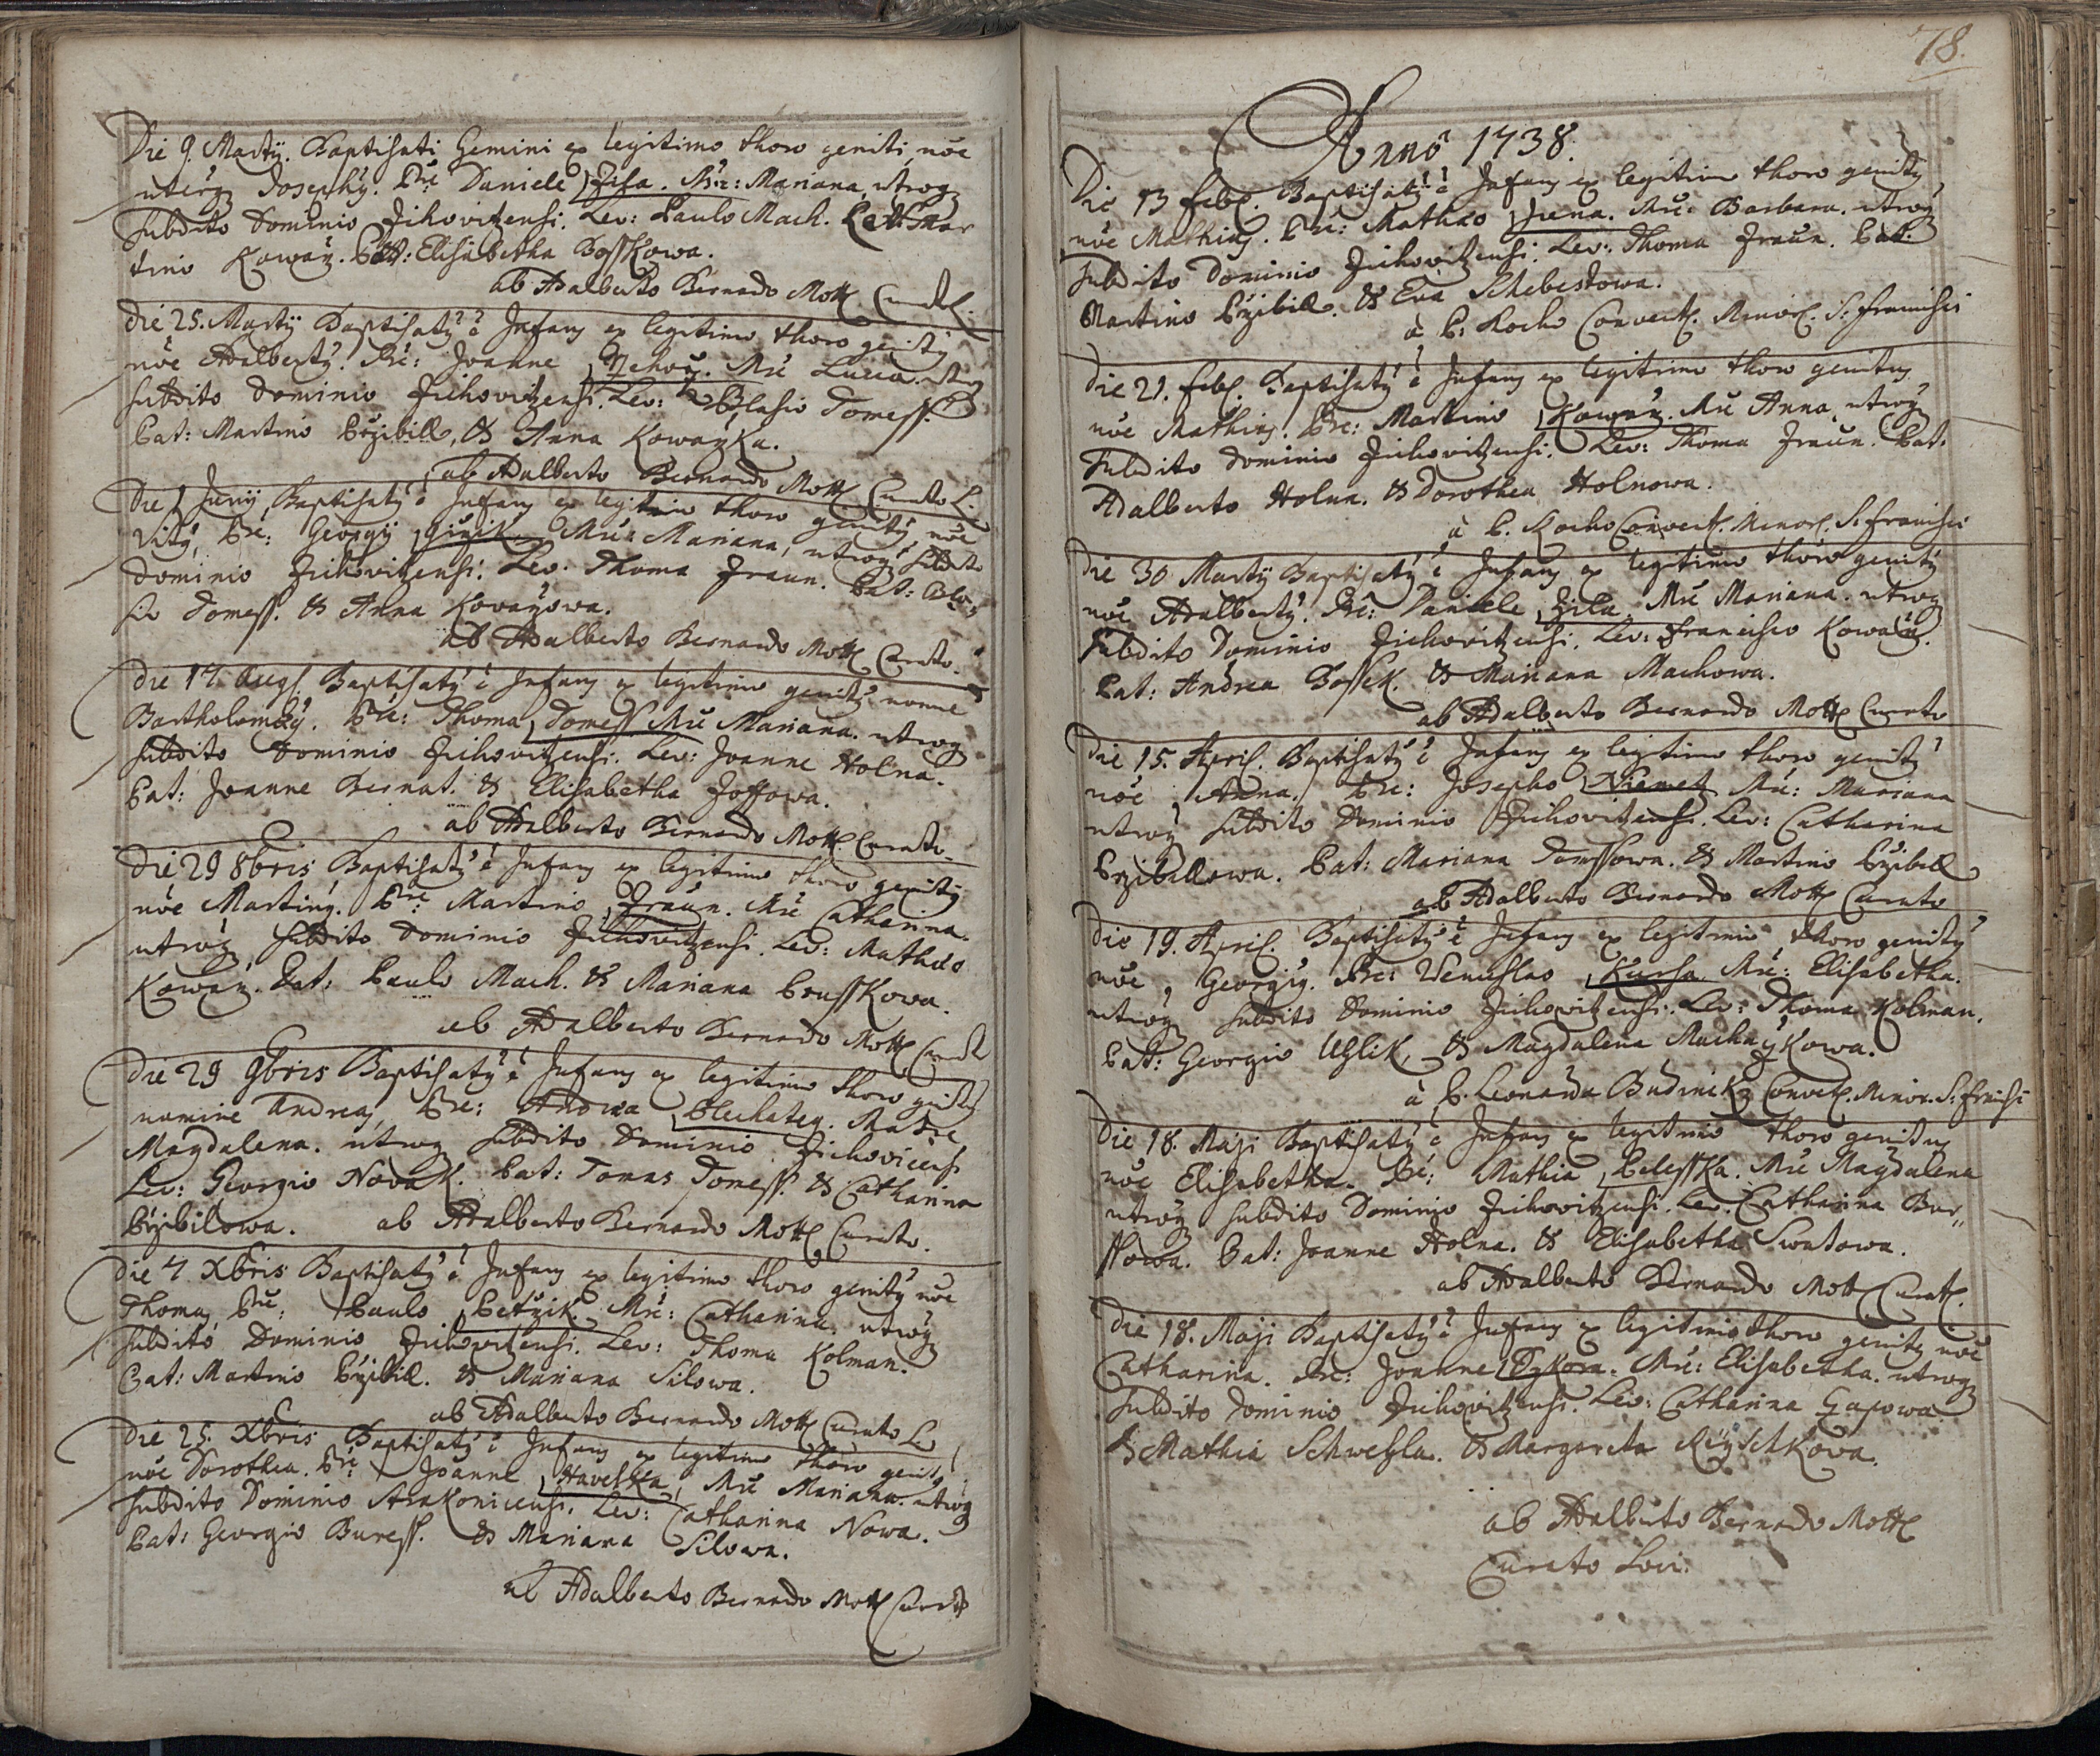 Die 9. Martÿ. Baptisati Gemini ex legitimo thoro geniti, nõe
uterq Josephq. Pre: Daniele Zisa. Mre: Mariana, utroq
subdito Dominio Zihovitzensi. Lev: Paulo Mach. Pat: Mar
tino Kowarz. Elisabetha Bosskowa.
ab Adalberto Bernardo Mottl Curato L.
Die 25. Martÿ Baptisatq ẽ Infans ex legitimo thoro genitq
nõe Adalbertq. Pre: Joanne Mre Lucia. utroq
subdito Dominio Zihovitzensi. Lev: Blasio Domess.
Pat: Martino Przibill, & Anna Kowarzka.
ab Adalberto Bernardo Mottl Curato L.
Die Junÿ, Baptisatq ẽ Infans ex legitimo thoro genitq, nõe
Vitq, Pre: Georgÿ Mre Mariana, utroq subdito
Dominio Zihovitzensi. Lev: Thoma Fraun. Pat: Bla-
sio Domess. & Anna Kovarzowa.
ab Adalberto Bernardo Mottl Curato.
Die 17. Augs. Baptisatq ẽ Infans ex legitimo genitq nomine
Bartholomæq. Pre: Thoma Domess Mre Mariana. utroq
subdito Dominio Zihovitzensi. Lev: Joanne Holna.
Pat: Joanne Bernat. & Elisabetha Zoffowa.
ab Adalberto Bernardo Mottl Curato.
Die 29 8bris Baptisatq ẽ Infans ex legitimo thoro genitq
nõe Martinq. Pre: Martino Fraun. Mre Catharina.
utroq subdito Dominio Zihovitzensi. Lev: Mathæo
Kowarz. Pat: Paulo Mach. & Mariana Prusskova.
ab Adalberto Bernardo Mottl Curato
Die 29 9bris Baptisatq ẽ Infans ex legitimo thoro genitq
nomine Andreas, Pre: Andrea Plechateg. Matre
Magdalena. utroq subdito Dominio Zichovicensi
Lev: Georgio Novak. Pat: Tomas Domess. & Catharina
Przibilowa. ab Adalberto Bernardo Mottl Curato.
Die 7 Xbris Baptisatq ẽ Infans ex legitimo thoro genitq nõe
Thomas, Pre: Paulo Petrzik. Mre: Catharina. utroq
subdito Dominio Zihovitzensi. Lev: Thoma Kolman.
Pat: Martino Przibill. & Mariana Silowa.
ab Adalberto Bernardo Mottl Curato L.
Die 25. Xbris Baptisatq ẽ Infans ex legitimo thoro genitq
nõe Dorothea. Pre Joanne Havelka, Mre Mariana. utroq
subdito Dominio Strakonicensi. Lev: Catharina Nowa.
Pat: Georgio Buress. & Mariana Silowa.
ab Adalberto Bernardo Mottl Curato
78.
Anno 1738.
Die 13 Feb. Baptisatq ẽ Infans ex legitimo thoro genitq
nõe Mathias. Pre: Mathæo Mre Barbara. utroq
subdito Dominio Zichovitzensi. Lev: Thoma Fraun. Pat:
Martino Przibill. & Eva Schebestowa.
à P: Rocho Convent. Minor. S: Francisci
Die 21. Feb. Baptisatq ẽ Infans ex legitimo thoro genitus
nõe Mathias. Pre: Martino Kowarz. Mre Anna, utroq
subdito Dominio Zichovitzensi. Lev: Thoma Fraun. Pat:
Adalberto Holna. & Dorothea Holnowa.
à P. Rocho Convent. Minor. S: Francisci
Die 30 Martÿ Baptisatq ẽ Infans ex legitimo thoro genitq
nõe Adalbertq. Pre: Daniele Zila Mre Mariana. utroq
subdito Dominio Zichovitzensi. Lev: Francisco Kowarz.
Pat: Andrea Bossek. & Mariana Machowa.
ab Adalberto Bernardo Mottl Curato
Die 15. April. Baptisatq ẽ Infans ex legitimo thoro genitq
nõe Anna. Pre: Josepho Niemetz Mre: Mariana
utroq subdito Dominio Zichovitzensi. Lev: Catharina
Przibillowa. Pat: Mariana Domssowa. & Martino Przibill
ab Adalberto Bernardo Mottl Curato
Die 19. April. Baptisatq ẽ Infans ex legitimo thoro genitq
nõe, Georgiq. Pre: Wenceslao Kursa. Mre: Elisabetha.
utroq subdito Dominio Zichovitzensi. Lev: Thoma Kolman.
Pat: Georgio Uhlik, & Magdalena Machaczkowa.
à P. Leonarda Budinsky Convent. Minor. S: Francisci
Die 18. Maji Baptisatq ẽ Infans ex legitimo thoro genitus
nõe Elisabetha. Pre: Mathia Pelesska. Mre Magdalena
utroq subdito Dominio Zichovitzensi. Lev: Catharina Bur-
ssowa. Pat: Joanne Holna. & Elisabetha Swatowa.
ab Adalberto Bernardo Mottl Curato.
Die 18. Maji Baptisatq ẽ Infans ex legitimo thoro genitq nõe
Catharina. Pre: Joanne Sykora. Mre: Elisabetha. utroq
subdito Dominio Zichovitzensi. Lev: Catharina Gapowa
& Mathia Schwehla. & Margareta Rÿschkowa.
ab Adalberto Bernardo Mottl
Curato Loci.